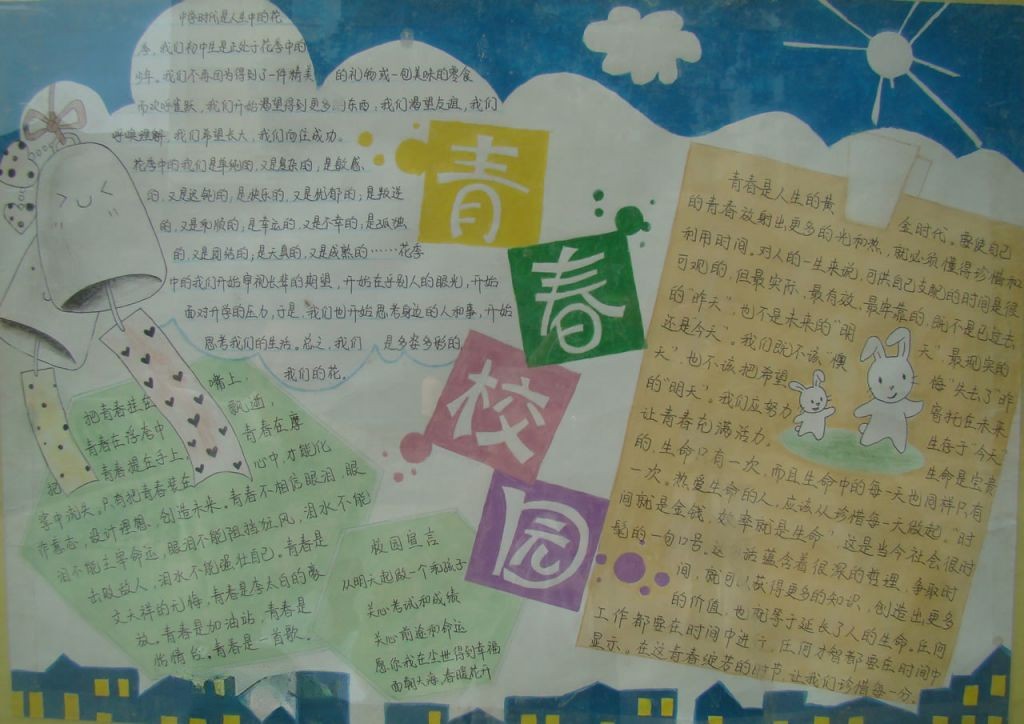 中学时代是人生中的花
季，我们初中生是正处于花季中的
少年。我们不再因为得到了一件精美的礼物或一包美味的零食
而欢呼雀跃，我们开始渴望得到更多的东西：我们渴望友谊，我们
呼唤理解，我们希望长大，我们向往成功。
花季中的我们是单纯的，又是复杂的；是敏感
的，又是迟钝的；是快乐的，又是忧郁的；是叛逆
的，又是和顺的；是幸运的，又是不幸的；是孤独
的，又是团结的，是天真的，又是成熟的……花季
中的我们开始审视长辈的期望，开始在乎别人的眼光，开始
面对升学的压力，于是，我们也开始思考身边的人和事，开始
思考我们的生活。总之，我们是多姿多彩的，
我们的花。
青
春
校
园
把青春挂在嘴上，
青春在浮夸中飘逝，
把青春握在手上，青春在摩
挲中消失。只有把青春装在心中，才能化
作意志，设计理想，创造未来。青春不相信眼泪，眼
泪不能主宰命运，眼泪不能阻挡狂风，泪水不能
击败敌人，泪水不能强壮自己。青春是
文天祥的无悔，青春是李太白的豪
放。青春是加油站，青春是
抒情台。青春是一首歌。
校园宣言
从明天起做一个和孩子
关心考试和成绩
关心前途和命运
愿你我在尘世得到幸福
面朝大海，春暖花开
青春是人生的黄金时代。要使自己
的青春放射出更多的光和热，就必须懂得珍惜和
利用时间。对人的一生来说，可供自己支配的时间是很
可观的，但最实际、最有效、最牢靠的，既不是已逝去
的“昨天”，也不是未来的“明天”，最现实的
还是今天”。我们既不该“懊悔”失去了“昨
天”，也不该把希望寄托在未来
的“明天”。我们应努力生存于“今天”
让青春充满活力。生命是宝贵
的，生命只有一次，而且生命中的每一天也同样只有
一次。热爱生命的人，应该从珍惜每一天做起。“时
间就是金钱，效率就是生命”这是当今社会很时
髦的一句口号。这话蕴含着很深的哲理，争取时
间，就可以获得更多的知识，创造出更多
的价值，也就等于延长了人的生命。任何
工作都要在时间中进行，任何才智都要在时间中
显示。在这青春绽芳的时节，让我们珍惜每一分。